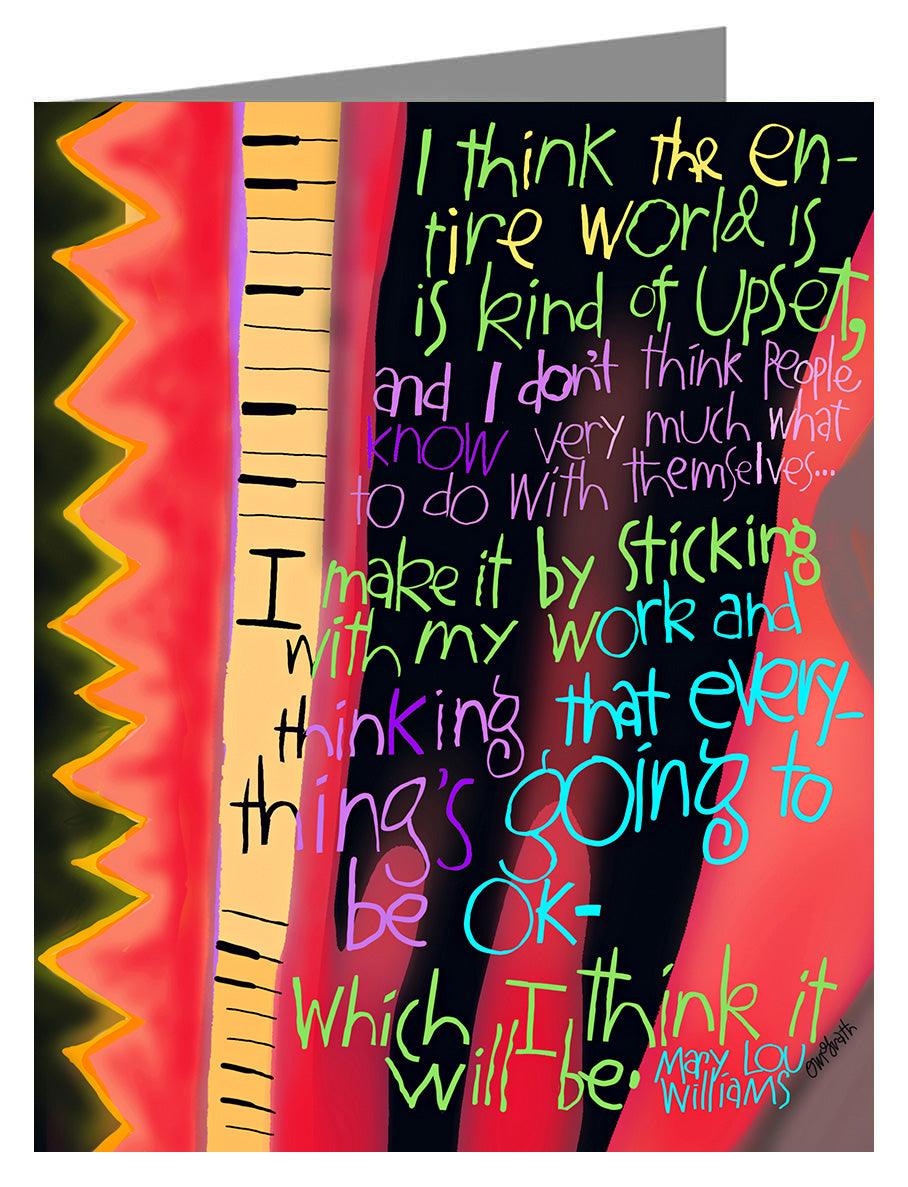 I think the en-
tire world is
is kind of upset,
and I don't think people
know very much what
to do with themselves...
I make it by sticking
with my work and
thinking that every-
thing's going to
be ok-
Which I think it
will be.
Mary Lou
Williams